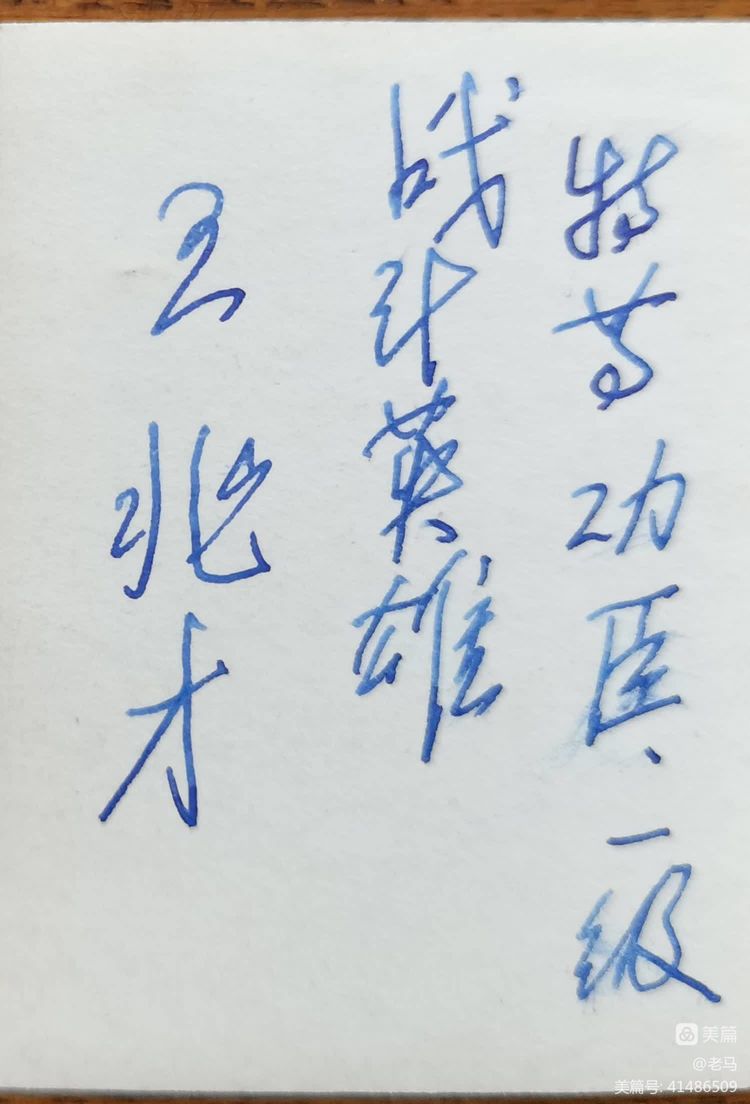 特等功臣、一级
战斗英雄
王兆才
美篇
@老马
美篇号: 41486509